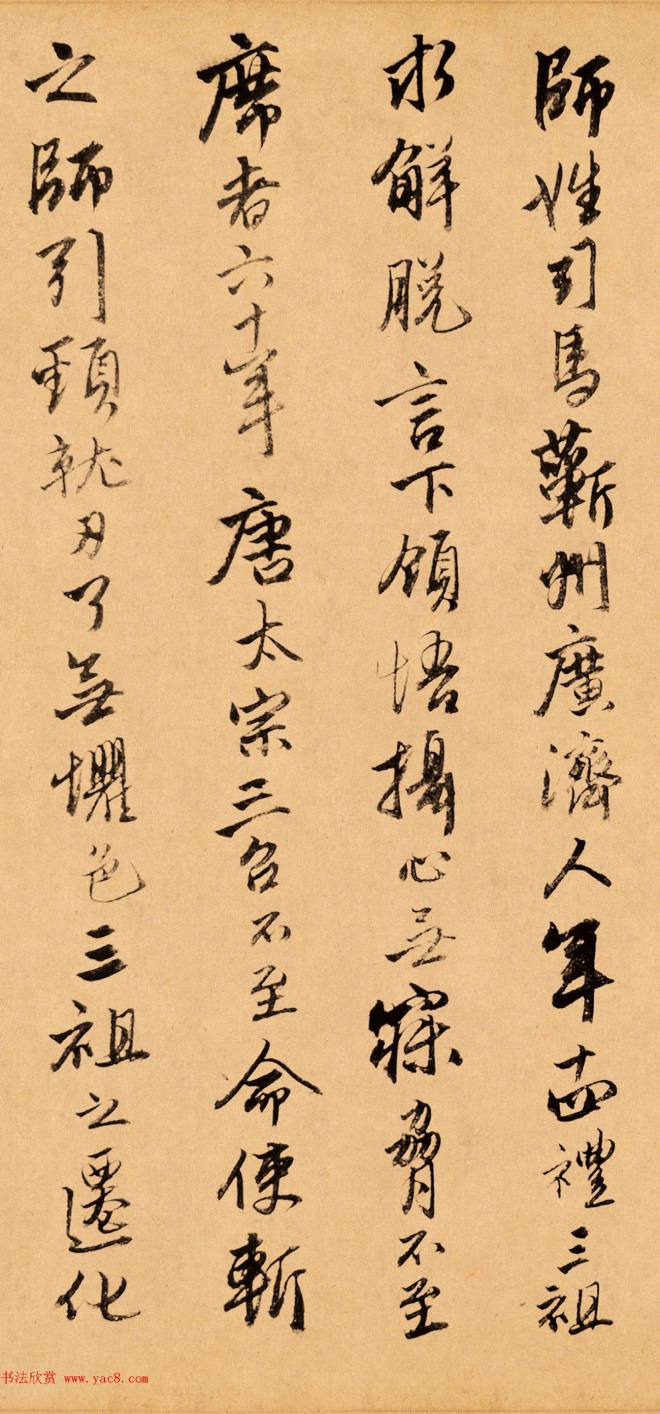 師姓司馬蘄州廣濟人年十四禮三祖
求解脫言下領悟攝心無寐脅不至
席者六十年唐太宗三召不至命使斬
之師引頸就刃了無懼色三祖之遷化
书法欣赏 www.yac8.com